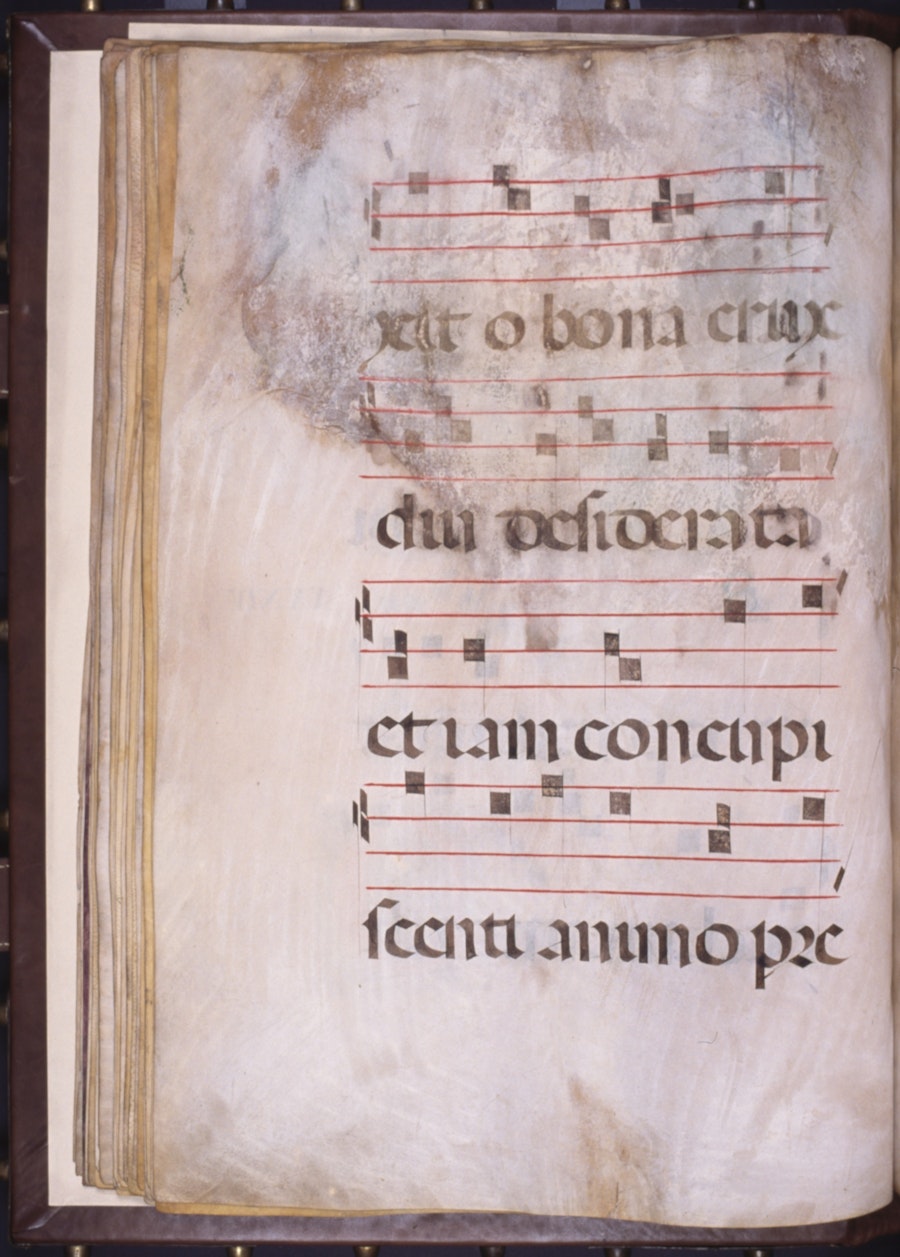 xit o bona crux
diu desiderata
et iam concupi
scenti animo pre